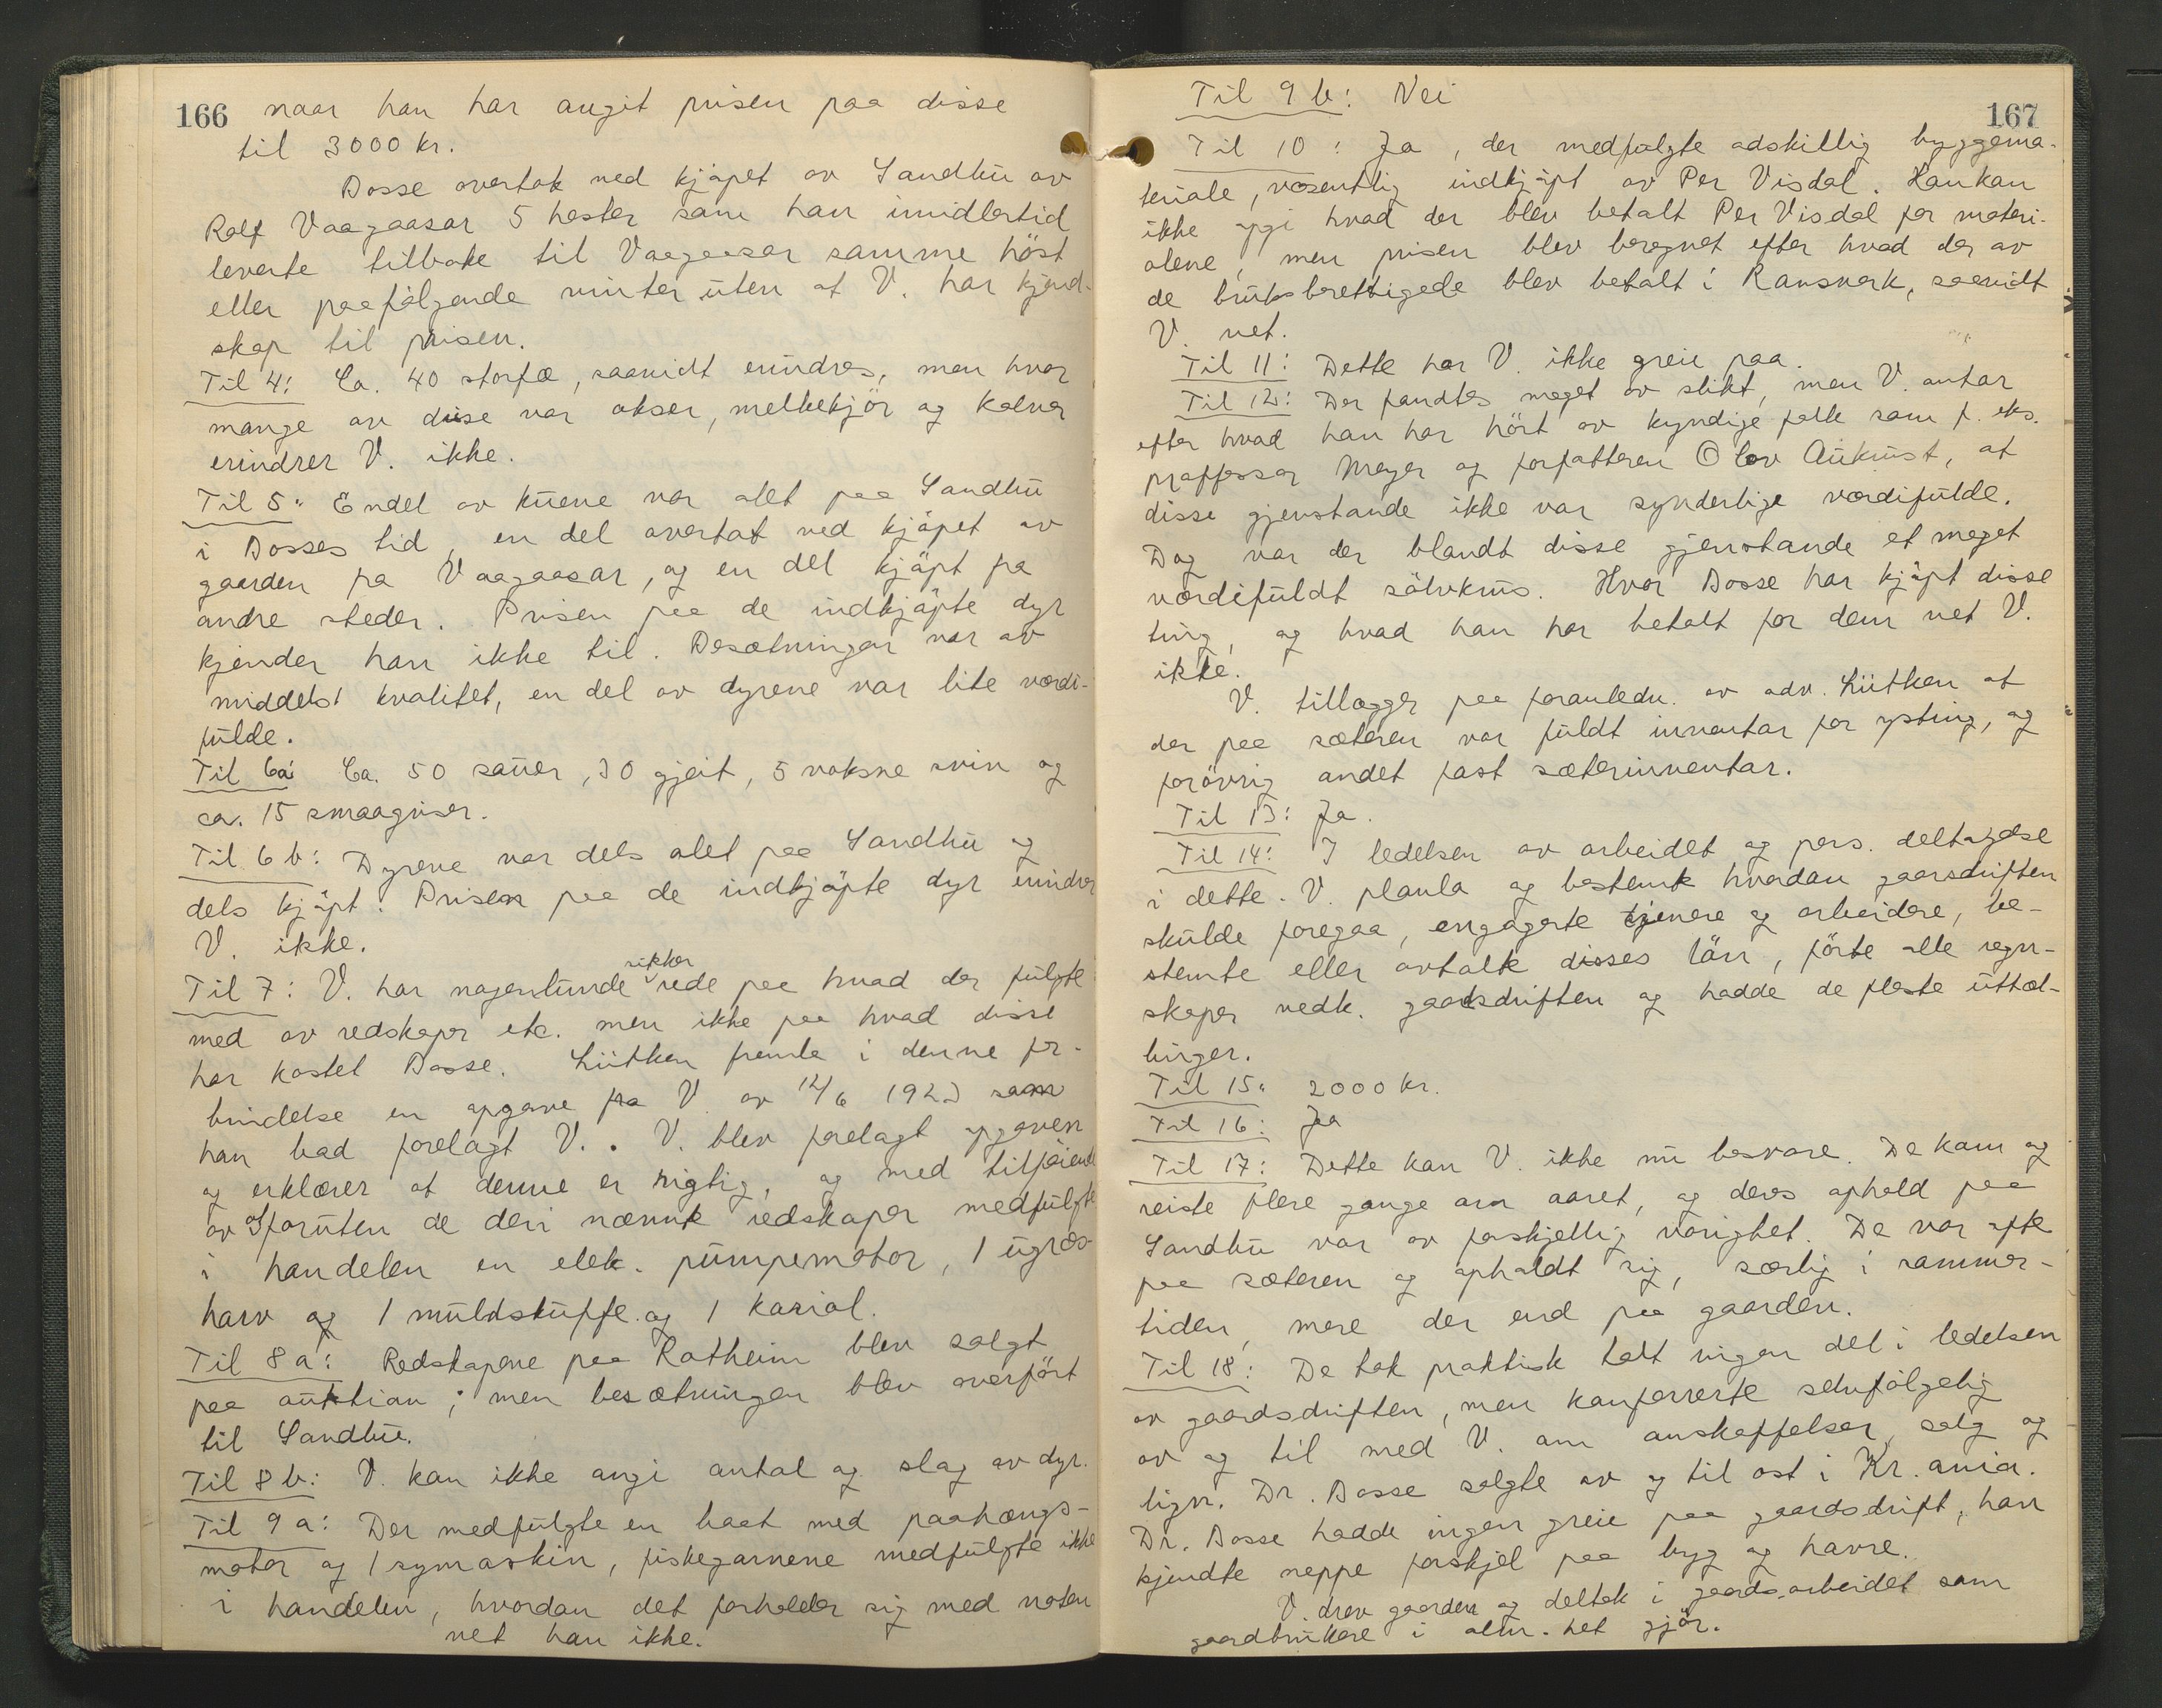 166 naar han har angit prisen paa disse
til 3000 kr.
Dosse overtok ved kjøpet av Sandbu av
Rolf Vaagaasar 5 hester som han imidlertid
leverte tilbake til Vaagaasar samme höst
eller paafølgende vinter uten at V. har kjend-
skap til prisen.
Til 4: Ca. 40 storfæ, saavidt erindres, men hvor
mange av disse var okser, melkekjör og kalver
erindrer V. ikke.
Til 5: Endel av kuene var alet paa Sandbu
i Dosses tid, en del overtat ved kjøpet av
gaarden fra Vaagaasar, og en del kjøpt fra
andre steder. Prisen paa de indkjøpte dyr
kjender han ikke til. Besætningen var av
middels kvalitet, en del av dyrene var lite værdi-
fulde.
Til 6a: Ca. 50 sauer, 30 gjeit, 5 voksne svin og
ca. 15 smaagriser.
Til 6 b: Dyrene var dels alet paa Sandbu og
dels kjøpt. Prisen paa de indkjøpte dyr erindrer
V. ikke.
Til 7: V. har nogenlunde sikker rede paa hvad der fulgte
med av redskaper etc. men ikke paa hvad disse
har kostet Dosse. Lütken fremla i denne for-
bindelse en opgave fra V. av 12/6 1923 som
han bad forelagt V. . V. blev forelagt opgaven
og erklærer at denne er rigtig, og med tilføiende
av at foruten de deri nævnte redskaper medfulgte
i handelen en elek. pumpemotor, 1 ugræs-
harv og 1 muldskuffe og 1 kariol.
Til 8 a: Redskapene paa Ratheim blev solgt
paa auktion; men besætningen blev overfört
til Sandbu.
Til 8 b: V. kan ikke angi antal og slag av dyr.
Til 9 a: Der medfulgte en baat med paahængs-
motor og 1 symaskin, fiskegarnene medfulgte ikke
i handelen, hvordan det forholder sig med noten
vet han ikke.
167
Til 9 b: Nei
Til 10: Ja, der medfølgte adskillig byggema-
teriale, væsentlig indkjøpt av Per Visdal. Han kan
ikke opgi hvad der blev betalt Per Visdal for materi-
alene, men prisen blev beregnet efter hvad der av
de bruksberettigede blev betalt i Ransverk, saavidt
V. vet.
Til 11: Dette har V. ikke greie paa.
Til 12: Der fandtes meget av slikt, men V. antar
efter hvad han har hört av kyndige folk som f. eks.
proffessor Meyer og forfatteren Olav Aukrust, at
disse gjenstande ikke var synderlige værdifulde.
Dog var der blandt disse gjenstande et meget
værdifuldt sölvkrus. Hvor Dosse har kjøpt disse
ting, og hvad han har betalt for dem vet V.
ikke.
V. tillægger paa foranledn. av adv. Lütken at
der paa sæteren var fuldt inventar for ysting, og
forövrig andet fast sæterinventar.
Til 13: Ja.
Til 14: I ledelsen av arbeidet og pers. deltagelse
i dette. V. planla og bestemte hvordan gaarsdriften
skulde foregaa, engagerte tjenere og arbeidere, be-
stemte eller avtalte disses lön, förte alle regn-
skaper vedk. gaardsdriften og hadde de fleste uttæl-
linger.
Til 15: 2000 kr.
Til 16: Ja
Til 17: Dette kan V. ikke nu besvare. De kom og
reiste flere gange om aaret, og deres ophold paa
Sandbu var av forskjellig varighet. De var ofte
paa sæteren og opholdt sig, særlig i sommer-
tiden, mere der end paa gaarden.
Til 18: De tok praktisk talt ingen del i ledelsen
av gaardsdriften, men konfererte selvfølgelig
av og til med V. om anskaffelser, salg og
lign. Dr. Dosse solgte av og til ost i Kr.ania.
Dr. Dosse hadde ingen greie paa gaardsdrift, han
kjendte neppe forskjel paa byg og havre.
V. drev gaarden og deltok i gaardsarbeidet som
gaardbrukere i alm.het gjör.